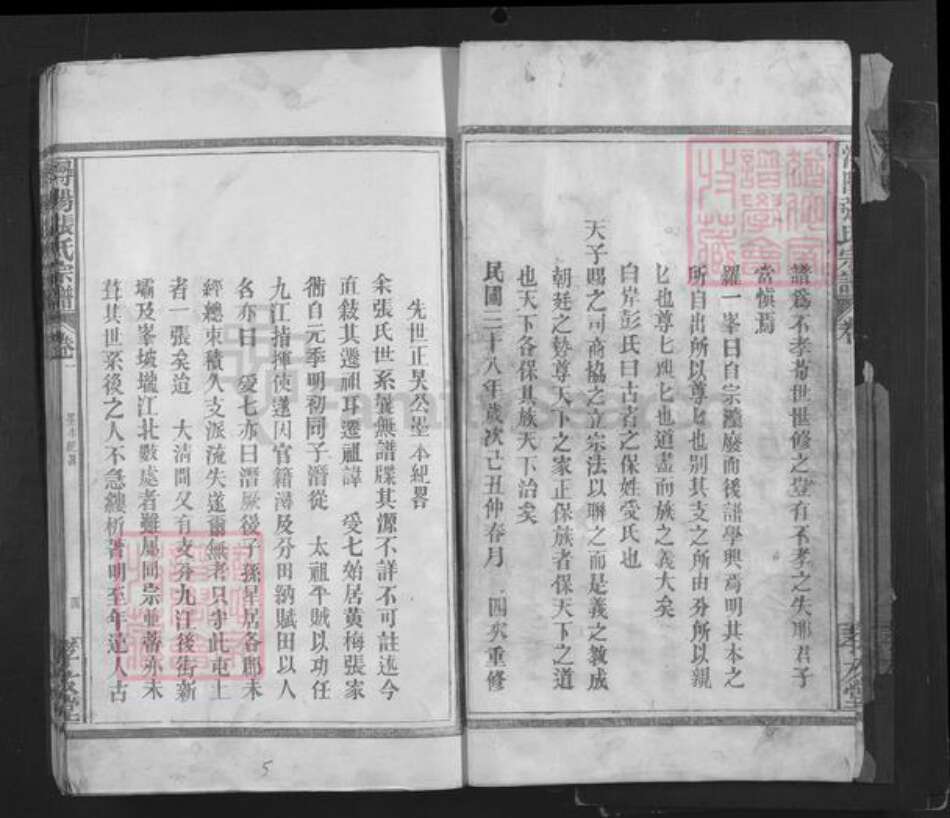 譜爲不孝若世世修之豈有不孝之失耶君子
當慎焉
羅一峯曰自宗灋廢而後譜學興焉明其本之
所自出所以尊也別其支之所由分所以親
也尊親也道盡而族之義大矣
白岸彭氏曰古者之保姓受氏也
天子賜之司商協之立宗法以聯之而是義之教成
朝廷之勢尊天下之家正保族者保天下之道
也天下各保其族天下治矣
民國三十八年歲次己丑仲春月 四次重修
先世正昊公墨本紀畧
余張氏世系舊無譜牒其源不詳不可註迄今
直敍其遷祖耳遷祖諱 愛七始居黃梅張家
衝自元季明初同子潛從 太祖平賊以功任
九江指揮使遂因官籍潯及分田納賦田以人
名亦曰 愛七亦曰潛厥後子孫星居各鄉未
經總束積久支派流失遂爾無考只守此屯土
者一張矣迨 大清間又有支分九江後街新
壩及峯坡壠江北數處者雖屬同宗並蒂亦未
葺其世系後之人不急縷析著明至年遠人古
潯陽張氏宗譜
卷一
四
孝友堂
5